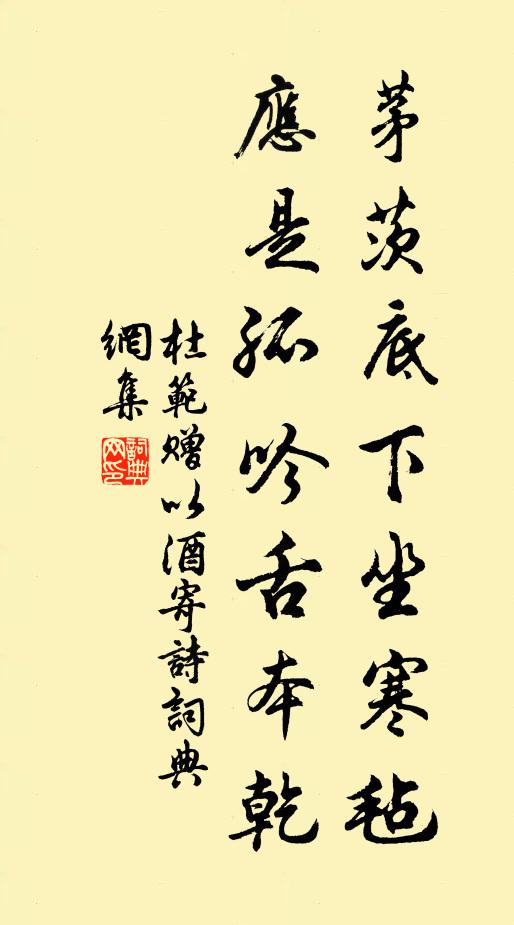 茅茨底下坐寒毡
應是孤吟舌本乾
杜範贈以酒寄詩詞典
網集
詞典網印